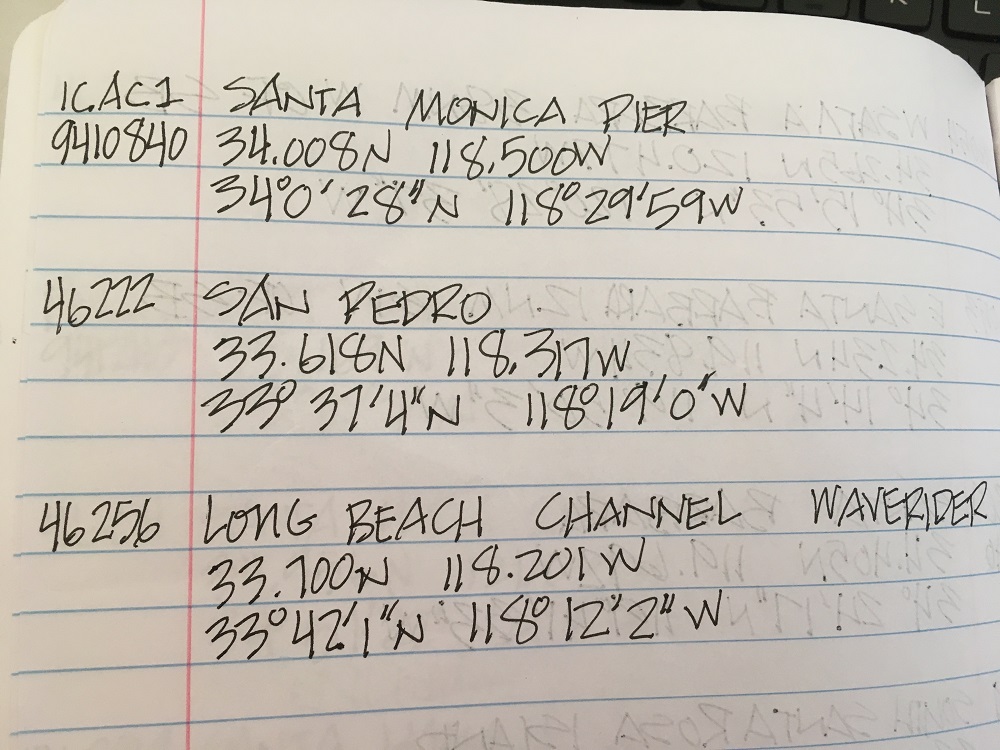 ICAC1 SANTA MONICA PIER
9410840 34.008N 118.500W
34°0'28"N 118°29'59W
46222 SAN PEDRO
33.618N 118.317W
33° 37'4"N 118°19'0"W
46256 LONG BEACH CHANNEL WAVERIDER
33.700N 118.201W
33°42'1"N 118°12"2"W